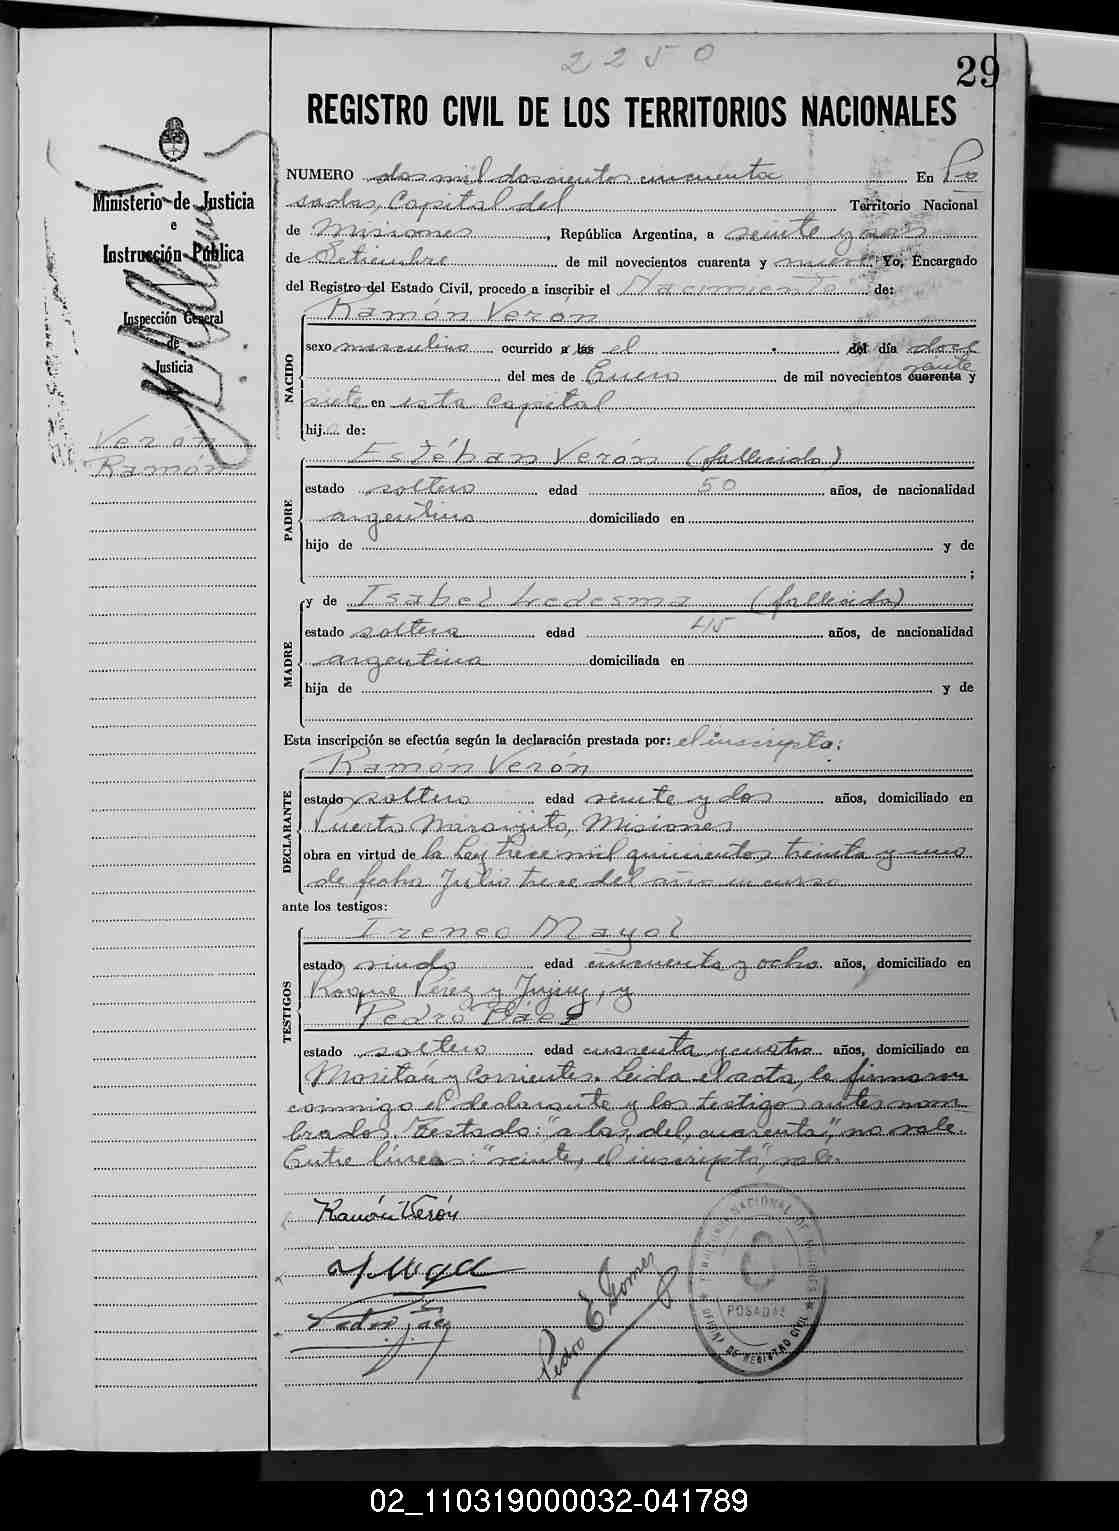 2250
29
REGISTRO CIVIL DE LOS TERRITORIOS NACIONALES
Ministerio de Justicia
e
Instrucción Pública
Inspección General
de
Justicia
Verón
Ramón
NUMERO dos mil doscientos cincuenta En Po
sadas, Capital del Territorio Nacional
de Misiones, República Argentina, a veinte y
de Setiembre de mil novecientos cuarenta y nueve Yo, Encargado
del Registro del Estado Civil, procedo a inscribir el Nacimiento de:
NACIDO
Ramón Verón
sexo masculino ocurrido a las el del día doce
veinte
del mes de Enero de mil novecientos cuarenta y
siete en esta Capital
hij de:
PADRE
Estéban Verón (fallecido)
estado soltero edad 50 años, de nacionalidad
argentino domiciliado en
hijo de y de
;
MADRE
y de Isabel Ledesma (fallecida)
estado soltera edad 45 años, de nacionalidad
argentina domiciliada en
hija de y de
Esta inscripción se efectúa según la declaración prestada por: el inscripto:
DECLARANTE
Ramón Verón
estado soltero edad veinte y dos años, domiciliado en
Puerto Naranjito, Misiones
obra en virtud de la Ley trece mil quinientos treinta y uno
de fecha Julio trece del año en curso
ante los testigos:
TESTIGOS
Ireneo Mayol
estado viudo edad cincuenta y ocho años, domiciliado en
Roque Pérez y Jujuy, y
Pedro Báez
estado soltero edad cuarenta y cuatro años, domiciliado en
Moritán y Corrientes. Leida el acta, la firmaron
conmigo el declarante y los testigos antes nom-
brados. Testado: "a las, del, cuarenta", no vale.
Entre líneas: "veinte, el inscripto", vale.
Ramón Verón
Pedro Báez
Pedro E Gomez
OFICINA DE REGISTRO CIVIL
POSADAS
02_110319000032-041789